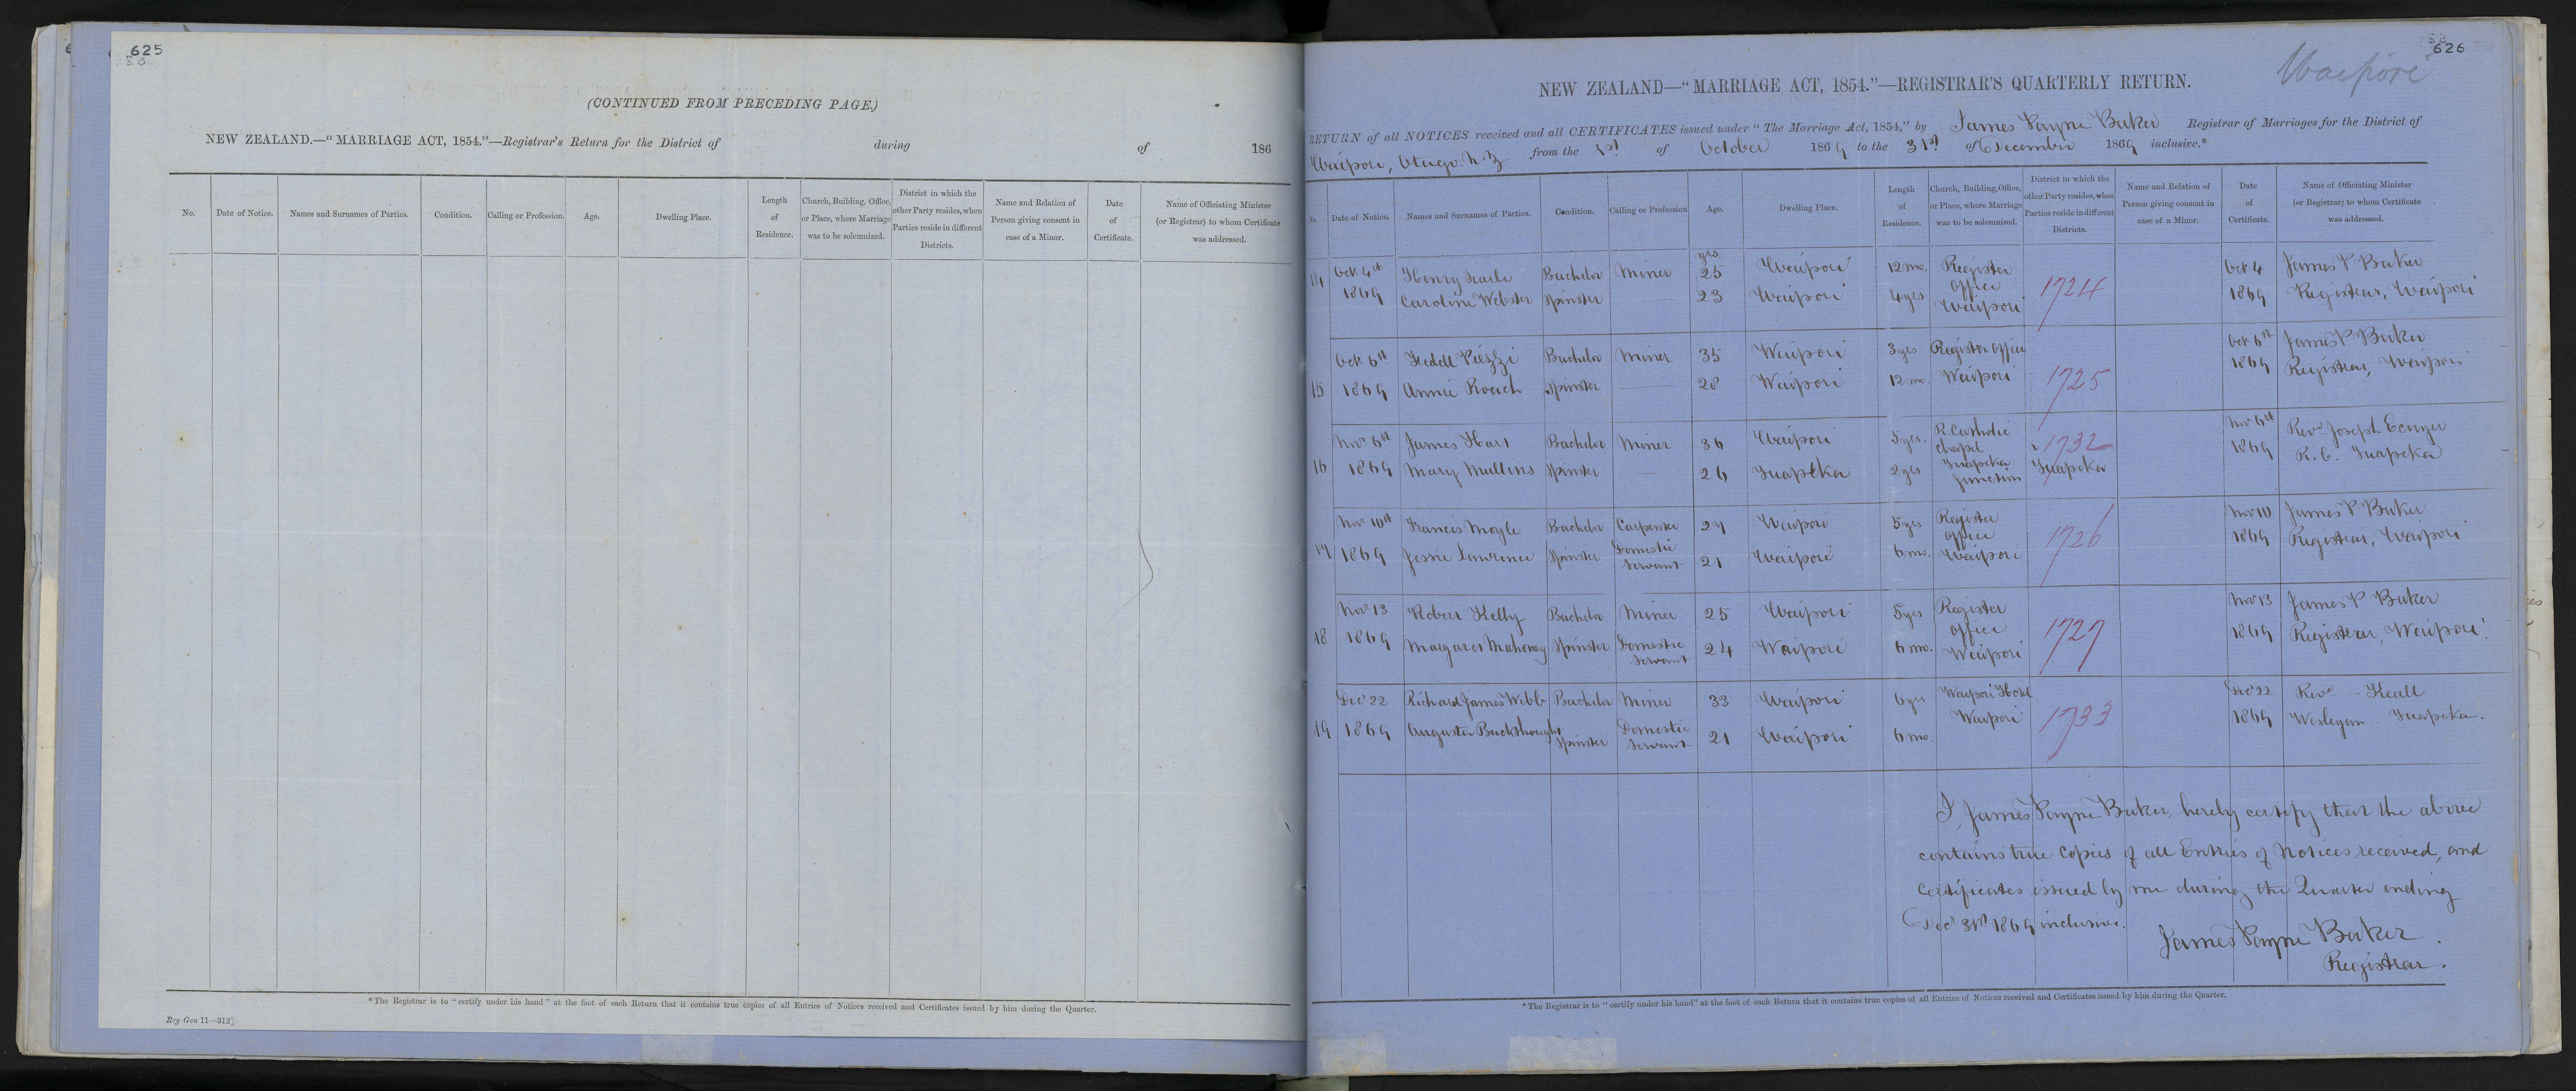 625
(CONTINUED FROM PRECEDING PAGE.)
NEW ZEALAND.—“MARRIAGE ACT, 1854.”—Registrar's Return for the District of during of 186
No. Date of Notice. Names and Surnames of Parties. Condition. Calling or Profession. Age. Dwelling Place. Length of Residence. Church, Building, Office, or Place, where Marriage was to be solemnized. District in which the other Party resides, when Parties reside in different Districts. Name and Relation of Person giving consent in case of a Minor. Date of Certificate. Name of Officiating Minister (or Registrar) to whom Certificate was addressed.
*The Registrar is to “certify under his hand” at the foot of each Return that it contains true copies of all Entries of Notices received and Certificates issued by him during the Quarter.
Reg Gen 11—312]
626
Waipori
NEW ZEALAND—“MARRIAGE ACT, 1854.”—REGISTRAR'S QUARTERLY RETURN.
RETURN of all NOTICES received and all CERTIFICATES issued under “The Marriage Act, 1854,” by James Payne Baker Registrar of Marriages for the District of
Waipori, Otago. N.Z from the 1st of October 1869 to the 31st of December 1869 inclusive.*
No. Date of Notice. Names and Surnames of Parties. Condition. Calling or Profession Age. Dwelling Place. Length of Residence. Church, Building, Office, or Place, where Marriage was to be solemnized. District in which the other Party resides, when Parties reside in different Districts. Name and Relation of Person giving consent in case of a Minor. Date of Certificate. Name of Officiating Minister (or Registrar) to whom Certificate was addressed.
yrs
14 Oct 4th Henry Searle Bachelor Miner 25 Waipori 12 mo. Register office Oct 4 James P Baker
1869 Caroline Webster Spinster 23 Waipori 4 yrs Waipori 1724 1869 Registrar, Waipori
Oct 6th Fedele Piezzi Bachelor Miner 35 Waipori 3 yrs Register office Oct 6th James P Baker
15 1869 Annie Roach Spinster 28 Waipori 12 mo. Waipori 1725 1869 Registrar, Waipori
Nov 6th James Hart Bachelor Miner 36 Waipori 5 yrs. R. Catholic Chapel 1732 Nov 6th Revd Joseph
16 1869 Mary Mullins Spinster 26 Tuapeka 2 yrs Tuapeka Junction Tuapeka 1869 R.C. Tuapeka
Nov 10th Francis Moyle Bachelor Carpenter 27 Waipori 5 yrs Register office Nov 10 James P Baker
17 1869 Jessie Lawrence Spinster Domestic Servant 21 Waipori 6 mo. Waipori 1726 1869 Registrar, Waipori
Nov 13 Robert Kelly Bachelor Miner 25 Waipori 5 yrs Register office Nov 13 James P Baker
18 1869 Margaret Mahoney Spinster Domestic Servant 24 Waipori 6 mo. Waipori 1727 1869 Registrar, Waipori
Dec 22 Richard James Webb Bachelor Miner 33 Waipori 6 yrs Waipori Hotel Dec 22 Revd — Keall
19 1869 Augusta Spinster Domestic Servant 21 Waipori 6 mo Waipori 1733 1869 Wesleyan Tuapeka.
I, James Payne Baker, hereby certify that the above
contains true Copies of all Entries of Notices received, and
Certificates issued by me during the Quarter ending
Dec 31st 1869 inclusive.
James Payne Baker.
Registrar.
*The Registrar is to “certify under his hand” at the foot of each Return that it contains true copies of all Entries of Notices received and Certificates issued by him during the Quarter.